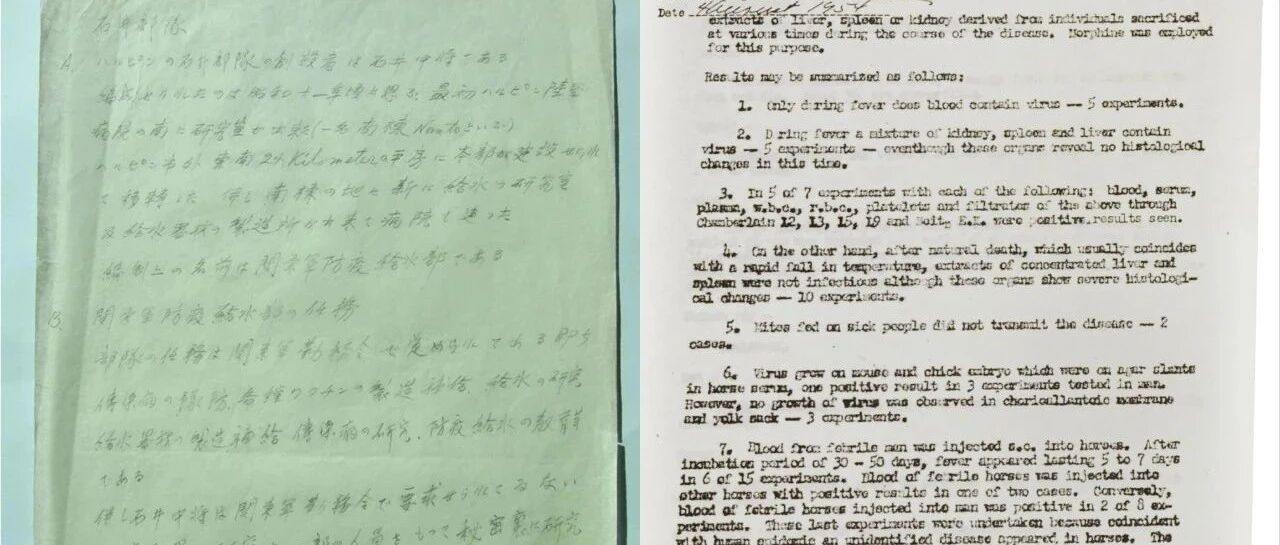 石井部隊
A. ハルピンの石井部隊の創設者は石井中将である
編成せられたのは昭和十一年頃と思ふ、最初ハルピン陸軍
病院の南に研究室が出来(一名南棟 と云ふ)
ハルピン市外 東南 24 Kilometerの平房に本部が建設せられ
て移轉した 併し南棟の地に新に給水の研究室
及給水器材の製造所が出来て病院と
編制上の名前は関東軍防疫給水部である
B. 関東軍防疫給水部の任務
部隊の任務は関東軍勤務令で定められてある即ち
傳染病の豫防、各種ワクチンの製造補給、給水の研究
給水器材の製造補給 傳染病の研究、防疫給水の教育
である
併し石井中将は関東軍勤務令で要求せられてゐない
秘密裏に研究
Date August 1954
extracts of liver, spleen or kidney derived from individuals sacrificed
at various times during the course of the disease. Morphine was employed
for this purpose.
Results may be summarized as follows:
1. Only d ring fever does blood contain virus — 5 experiments.
2. D ring fever a mixture of kidney, spleen and liver contain
virus — 5 experiments — eventhough these organs reveal no histological
changes in this time.
3. In 5 of 7 experiments with each of the following: blood, serum,
plasma, w.b.c., r.b.c., platelets and filtrates of the above through
Chamberlain 12, 13, 15, 19 and Seitz E.K. were positive results seen.
4. On the other hand, after natural death, which usually coincides
with a rapid fall in temperature, extracts of concentrated liver and
spleen were not infectious although these organs show severe histologi-
cal changes — 10 experiments.
5. Mites fed on sick people did not transmit the disease — 2
cases.
6. Virus grew on mouse and chick embryo which were on agar slants
in horse serum, one positive result in 3 experiments tested in man.
However, no growth of virus was observed in chorioallantoic membrane
and yolk sack — 3 experiments.
7. Blood from febrile man was injected s.c. into horses. After
incubation period of 30 - 50 days, fever appeared lasting 5 to 7 days
in 6 of 15 experiments. Blood of febrile horses was injected into
other horses with positive results in one of two cases. Conversely,
blood of febrile horses injected into man was positive in 2 of 8 ex-
periments. These last experiments were undertaken because coincident
with human epidemic an unidentified disease appeared in horses. The